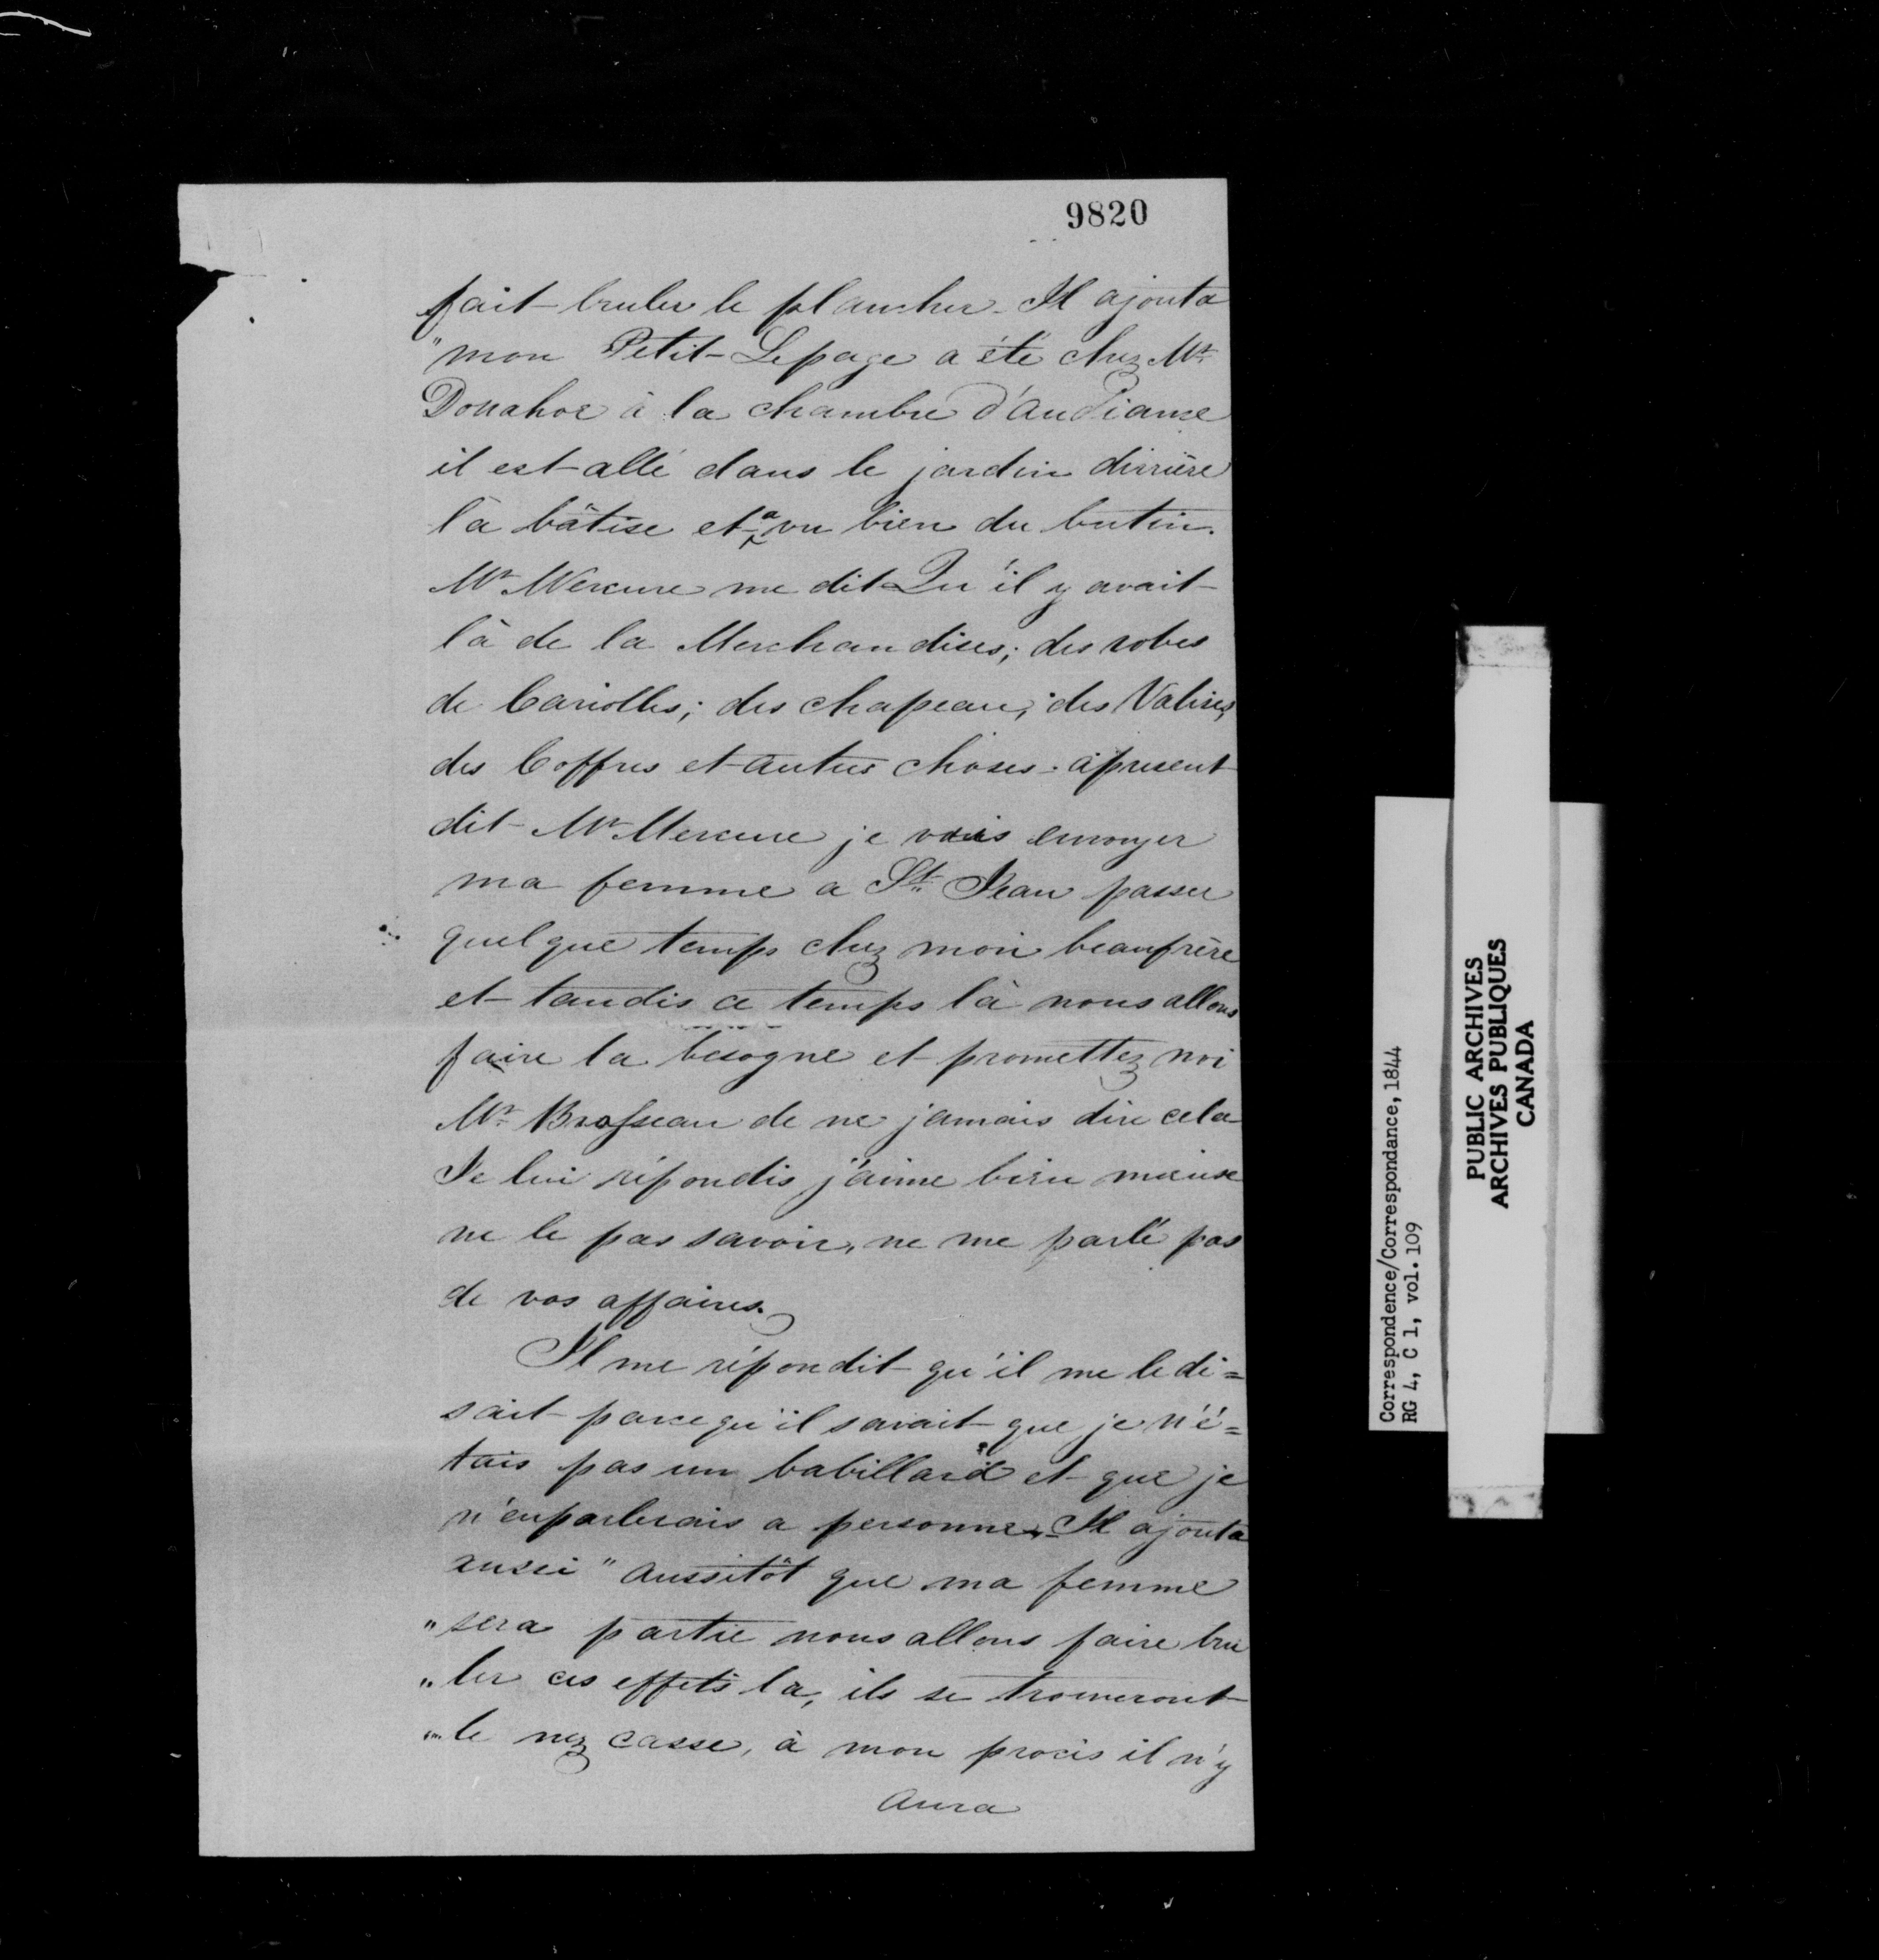 9820
fait bruler le plancher. Il ajouta
"mon Petit Lepage a été chez Mr
Donahoe à la chambre d'Audiance
il est allé dans le jardin dirrière
là bâtise et a vu bien du butin.
Mr Mercure me dit Qu'il y avait
là de la Merchandises; des robes
de Cariolles; des chapeau; des Valises,
des Coffres et autres choses. àpresent
dit Mr Mercure je vais envoyer
ma femme a St. Jean passer
quelque temps chez mon beaufrère
et tandis ce temps là nous allons
faire la besogne et promettez moi
Mr Brosseau de ne jamais dire cela
Je lui répondis j'aime bien mieuse
ne le pas savoir, ne me parlé pas
de vos affaires.
Il me répondit qu'il me le di=
sait parcequ'il savait que je n'é=
tais pas un babillard et que je
n'enparlerais a personne. Il ajouta
aussi "Aussitôt que ma femme
"sera partie nous allons faire bru
"ler ces effets la, ils se trouveront
"le nez casse, à mon procis il n'y
Aura
Correspondence/Correspondance, 1844
RG 4, C 1, vol. 109
PUBLIC ARCHIVES
ARCHIVES PUBLIQUES
CANADA